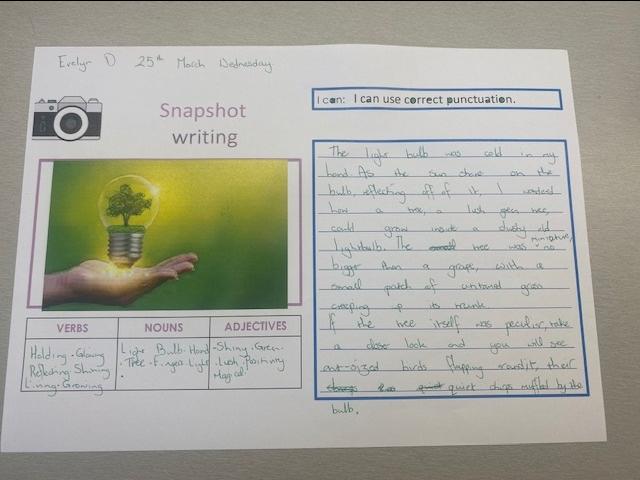 Evelyn D 25th March Wednesday
Snapshot
writing
I can: I can use correct punctuation.
The light bulb was cold in my
hand. As the sun shone on the
bulb, reflecting off of it, I wondered
how a tree, a lush green tree,
could grow inside a dusty old
lightbulb. The small tree was miniature, no
bigger than a grape, with a
small patch of untamed grass
creeping up its trunk.
If the tree itself was peculiar, take
a closer look and you will see
ant-sized birds flapping around it, their
quiet chirps muffled by the
bulb.
VERBS NOUNS ADJECTIVES
Holding · Glowing
Reflecting · Shining
Living · Growing
Light Bulb · Hand
· Tree · Fingers · Light
·
· Shiny · Green
· Lush · Positivity
Magical